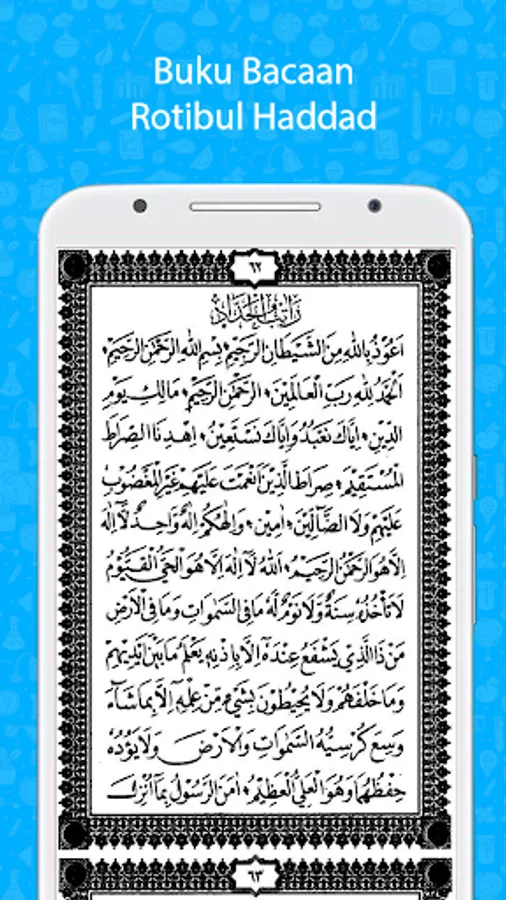 Buku Bacaan
Rotibul Haddad
٦٢
رَاتِبُ الْحَدَّادْ
اَعُوْذُ بِاللهِ مِنَ الشَّيْطَانِ الرَّجِيْمِ، بِسْمِ اللهِ الرَّحْمٰنِ الرَّحِيْمِ،
اَلْحَمْدُ لِلهِ رَبِّ الْعَالَمِيْنَ، الرَّحْمٰنِ الرَّحِيْمِ، مَالِكِ يَوْمِ
الدِّيْنِ، اِيَّاكَ نَعْبُدُ وَاِيَّاكَ نَسْتَعِيْنُ، اِهْدِنَا الصِّرَاطَ
الْمُسْتَقِيْمَ، صِرَاطَ الَّذِيْنَ اَنْعَمْتَ عَلَيْهِمْ غَيْرِ الْمَغْضُوْبِ
عَلَيْهِمْ وَلَا الضَّآلِّيْنَ، اٰمِيْنَ، وَاِلٰهُكُمْ اِلٰهٌ وَّاحِدٌ لَآ اِلٰهَ
اِلَّا هُوَ الرَّحْمٰنُ الرَّحِيْمُ، اَللهُ لَآ اِلٰهَ اِلَّا هُوَ الْحَيُّ الْقَيُّوْمُ
لَا تَأْخُذُهُ سِنَةٌ وَّلَا نَوْمٌ لَهُ مَا فِى السَّمٰوَاتِ وَمَا فِى الْاَرْضِ
مَنْ ذَا الَّذِيْ يَشْفَعُ عِنْدَهُ اِلَّا بِاِذْنِهِ يَعْلَمُ مَا بَيْنَ اَيْدِيْهِمْ
وَمَا خَلْفَهُمْ وَلَا يُحِيْطُوْنَ بِشَيْءٍ مِّنْ عِلْمِهِ اِلَّا بِمَا شَآءَ
وَسِعَ كُرْسِيُّهُ السَّمٰوَاتِ وَالْاَرْضَ وَلَا يَؤُدُهُ
حِفْظُهُمَا وَهُوَ الْعَلِيُّ الْعَظِيْمُ، اٰمَنَ الرَّسُوْلُ بِمَآ اُنْزِلَ
٦٣